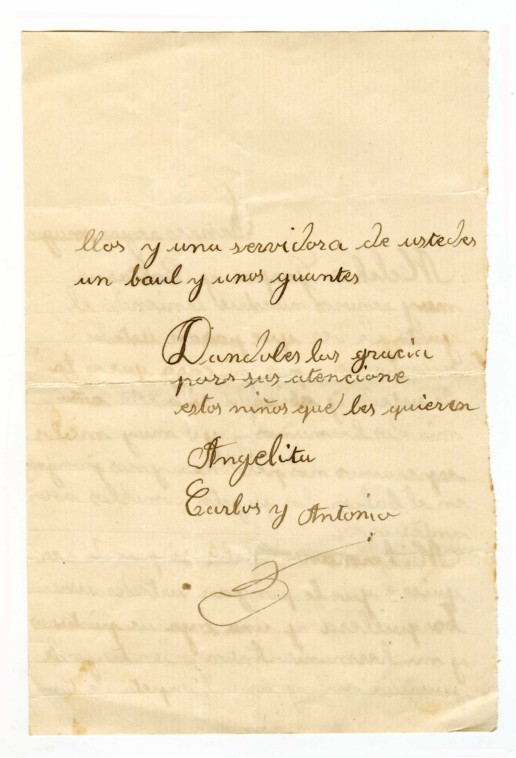 llos y una servidora de ustedes
un baul y unos guantes
Dandoles las gracia
para sus atencione
estos niños que les quieren
Angelita
Carlos y Antonio